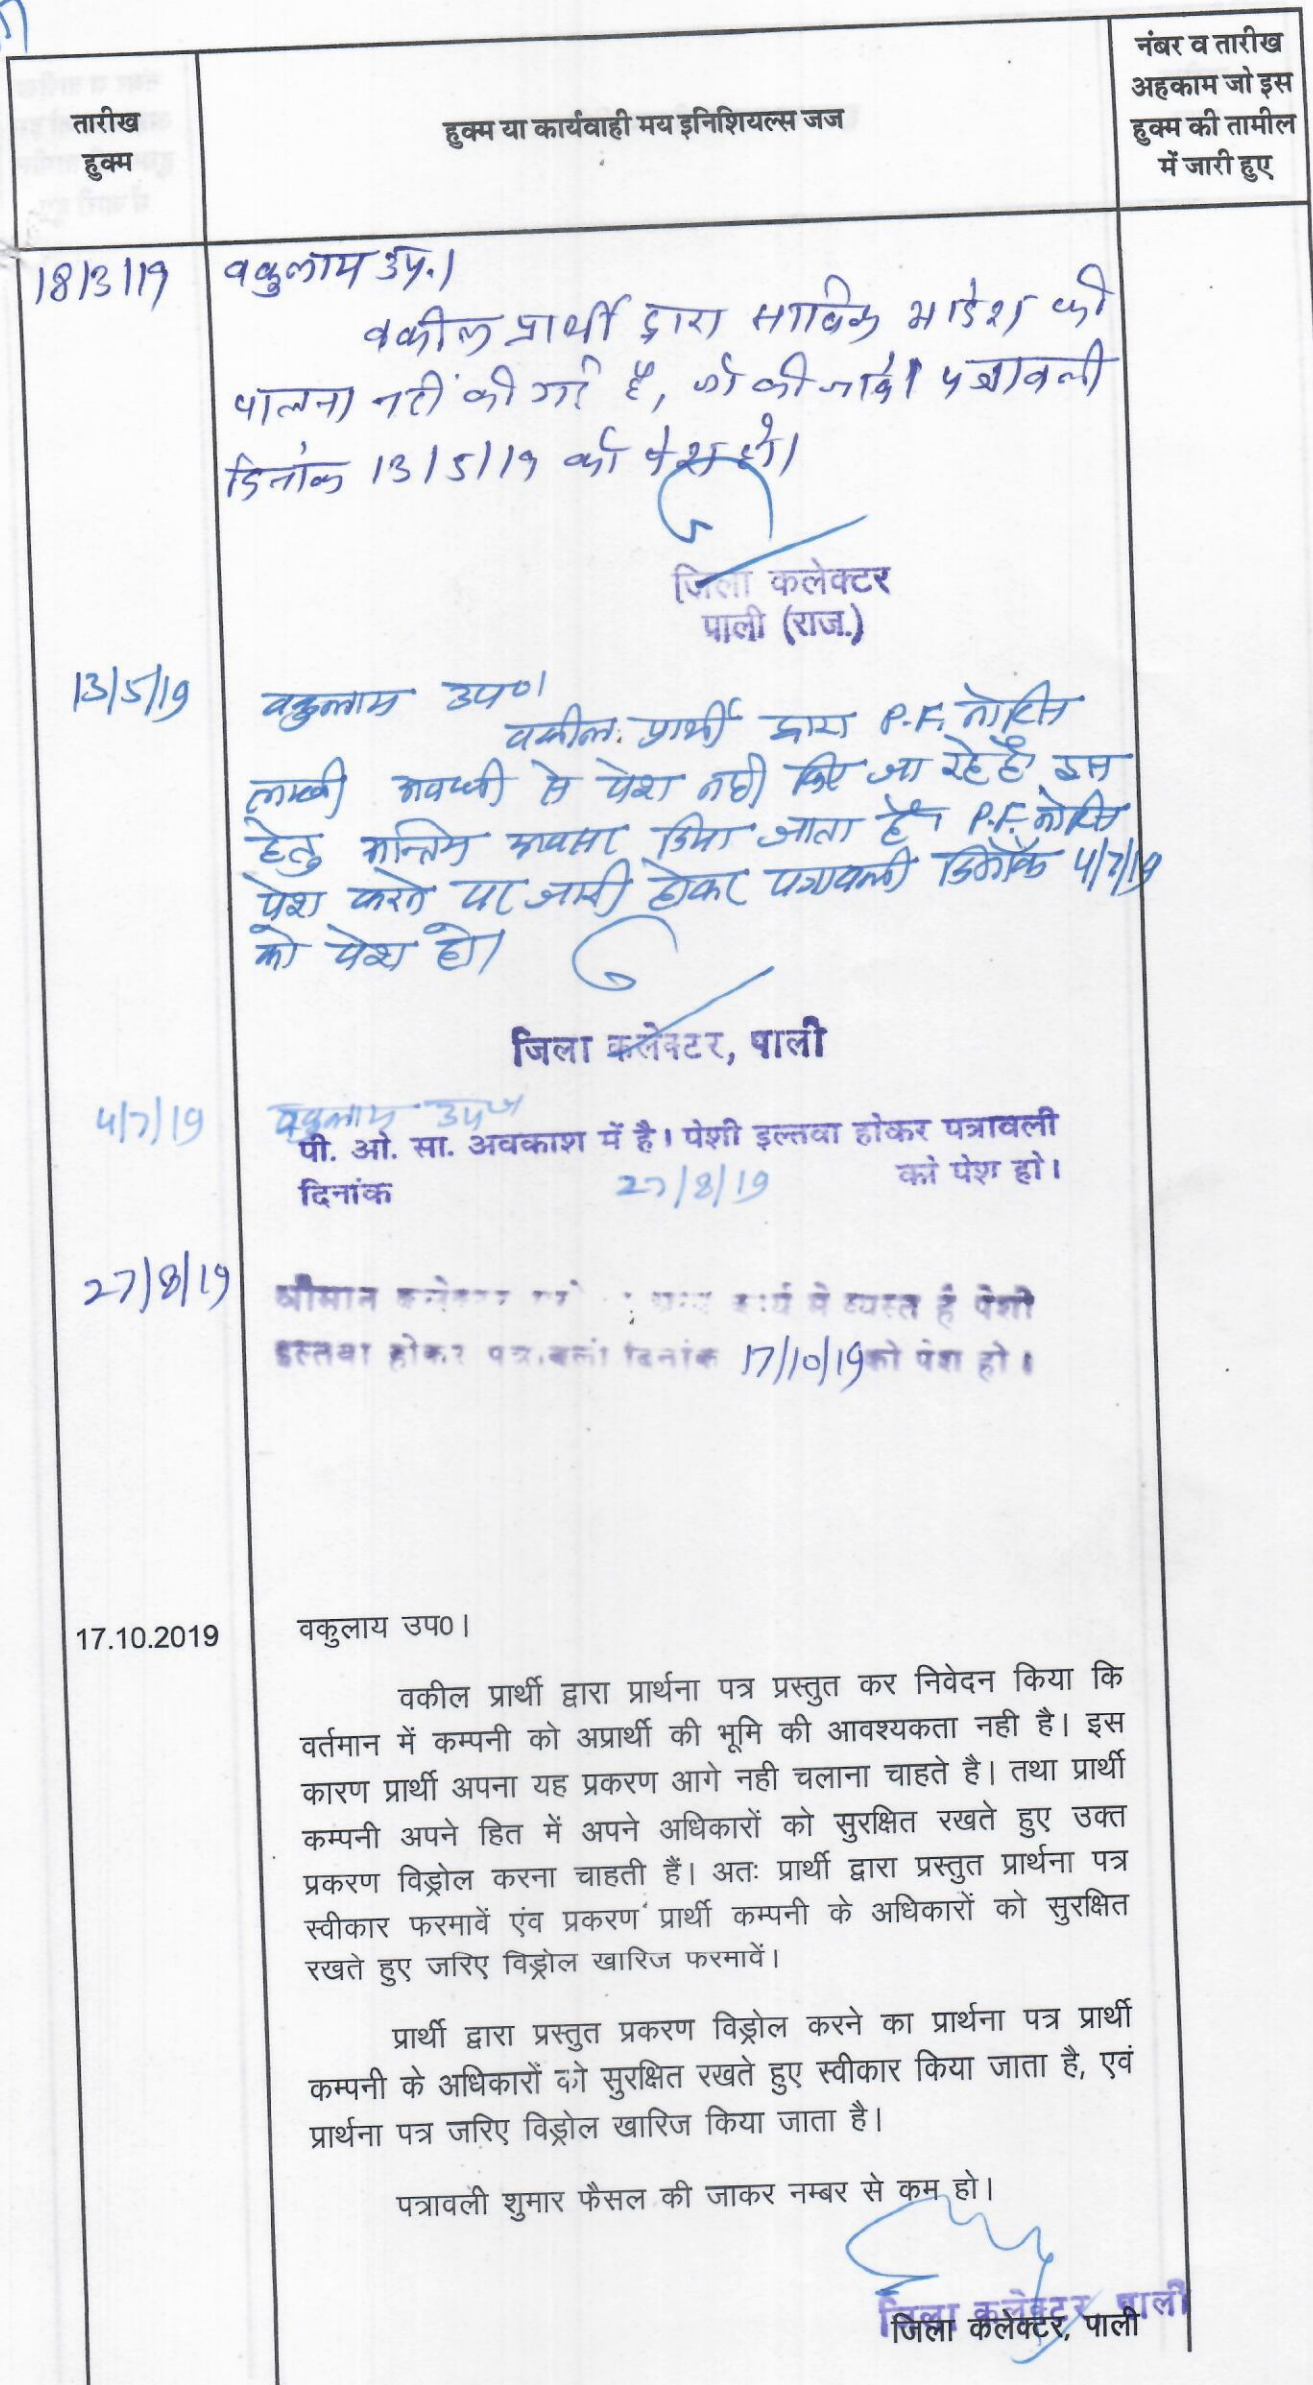 तारीख
हुक्म
हुक्म या कार्यवाही मय इनिशियल्स जज
नंबर व तारीख
अहकाम जो इस
हुक्म की तामील
में जारी हुए
18/3/19
वकुलाय उप.।
वकील प्रार्थी द्वारा साबिक आदेश की
पालना नहीं की गई है, जो की जावे। पत्रावली
दिनांक 13/5/19 को पेश हो।
जिला कलेक्टर
पाली (राज.)
13/5/19
वकुलाय उप०।
वकील प्रार्थी द्वारा P.F. नोटिस
लम्बी अवधी से पेश नही किए जा रहे है। इस
हेतु अन्तिम अवसर दिया जाता है। P.F. नोटिस
पेश करने पर जारी होकर पत्रावली दिनांक 4/7/19
को पेश हो।
जिला कलेक्टर, पाली
4/7/19
वकुलाय उप०
पी. ओ. सा. अवकाश में है। पेशी इल्तवा होकर पत्रावली
दिनांक 27/8/19 को पेश हो।
27/8/19
श्रीमान कलेक्टर कार्य में व्यस्त है पेशी
इल्तवा होकर पत्रावली दिनांक 17/10/19 को पेश हो।
17.10.2019
वकुलाय उप0।
वकील प्रार्थी द्वारा प्रार्थना पत्र प्रस्तुत कर निवेदन किया कि
वर्तमान में कम्पनी को अप्रार्थी की भूमि की आवश्यकता नही है। इस
कारण प्रार्थी अपना यह प्रकरण आगे नही चलाना चाहते है। तथा प्रार्थी
कम्पनी अपने हित में अपने अधिकारों को सुरक्षित रखते हुए उक्त
प्रकरण विड्रोल करना चाहती हैं। अतः प्रार्थी द्वारा प्रस्तुत प्रार्थना पत्र
स्वीकार फरमावें एंव प्रकरण प्रार्थी कम्पनी के अधिकारों को सुरक्षित
रखते हुए जरिए विड्रोल खारिज फरमावें।
प्रार्थी द्वारा प्रस्तुत प्रकरण विड्रोल करने का प्रार्थना पत्र प्रार्थी
कम्पनी के अधिकारों को सुरक्षित रखते हुए स्वीकार किया जाता है, एवं
प्रार्थना पत्र जरिए विड्रोल खारिज किया जाता है।
पत्रावली शुमार फैसल की जाकर नम्बर से कम हो।
जिला कलेक्टर, पाली
जिला कलेक्टर, पाली